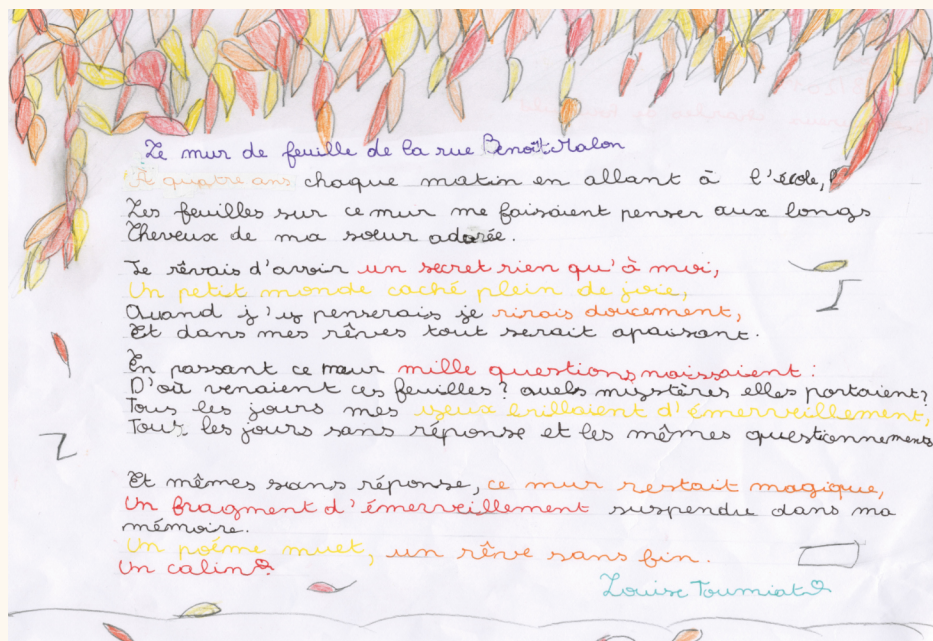 Le mur de feuille de la rue Benoît Malon
A quatre ans chaque matin en allant à l'école,
Les feuilles sur ce mur me faisaient penser aux longs
Cheveux de ma sœur adorée.
Je rêvais d'avoir un secret rien qu'à moi,
Un petit monde caché plein de joie,
Quand j'y penserais je rirais doucement,
Et dans mes rêves tout serait apaisant.
En passant ce mur mille questions naissaient :
D'où venaient ces feuilles ? quels mistères elles portaient ?
Tous les jours mes yeux brillaient d'émerveillement,
Tous les jours sans réponse et les mêmes questionnements
Et mêmes sans réponse, ce mur restait magique,
Un fragment d'émerveillement suspendu dans ma
mémoire.
Un poéme muet, un rêve sans fin.
Un calin
Louise Toumiat